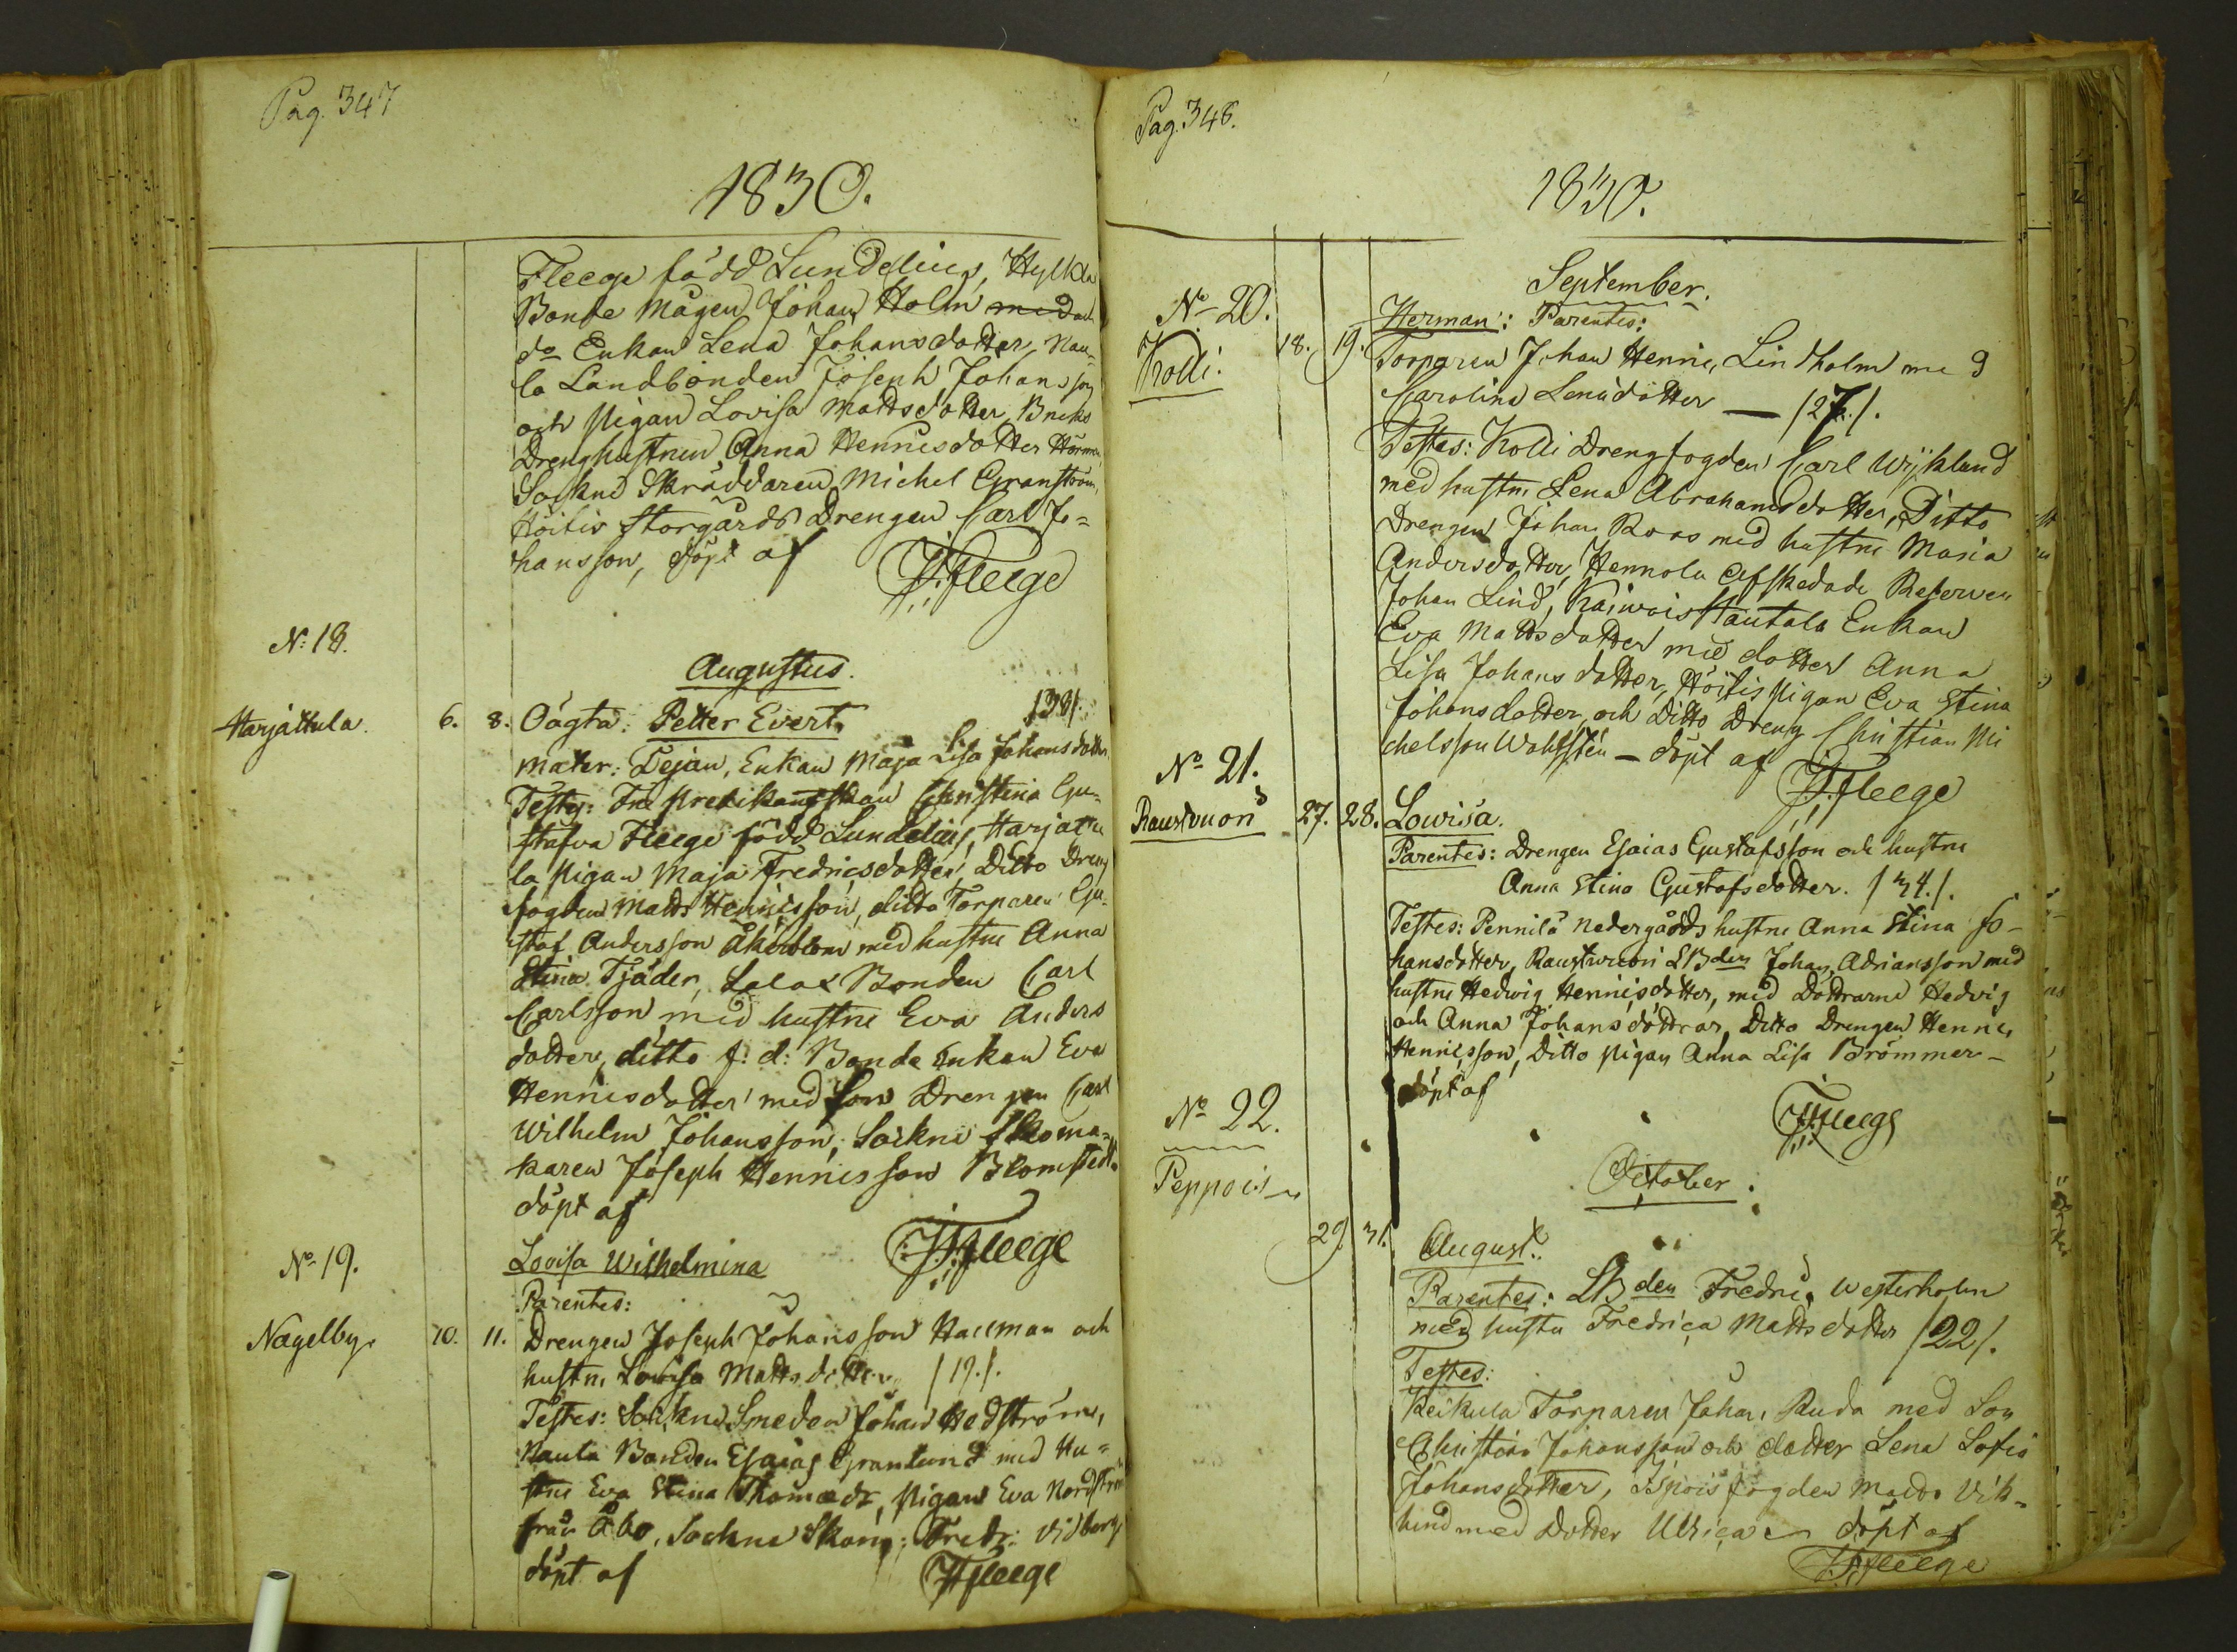 Pag. 347
1830.
Fleege född Lundelius, Hylkila
Bonde Mågen Johan Holm med och
do Enkan Lena Johansdotter, Nau-
la Landbonden Joseph Johansson
och Pigan Lovisa Mattsdotter, Bneks
Dreng hustrun Anna Hennisdotter
Sockne Skräddaren Michel Granström,
Höitis Storgårds Drengen Carl Jo-
hansson, döpt af
Fleege
Augustus.
N: 18.
Harjattula. 6. 8. Oägta: Petter Evert.
Mater: Dejan, Enkan Maja Lisa Johansdotter
Testes: Fru Predikantskan Christina Gu-
stafva Fleege född Lundelius, Harjattu
la Pigan Maja Fredricsdotter, Ditto Dreng
fogden Matts Hennisson, ditto Torparen Gu-
staf Andersson Åkerblom med hustru Anna
Stina Tjäder, Lalax Bonden Carl
Carlsson med hustru Eva Anders
dotter, ditto f: d: Bonde Enkan Eva
Hennisdotter med Son Drengen Carl
Wilhelm Johansson, Sockne Skoma-
karen Joseph Hennisson Blomstedt.
döpt af
Fleege
No 19. Lovisa Wilhelmina
Parentes:
Nagelby. 10. 11. Drengen Joseph Johansson Hallman och
hustru Lovisa Mattsdotter /19./.
Testes: Sockne Smeden Johan Hedström,
Nauta Bonden Esaias Granlund med Hu-
stru Eva Stina Thomasdr, Pigan Eva Nordström
från Åbo, Sockne Skom: Fredr: Vidberg
döpt af
Fleege
Pag. 348.
1830.
September.
No 20. Herman: Parentes:
Kolli. 18. 19. Torparen Johan Henric Lindholm med
Carolina Lenædotter — /27./.
Testes: Kolli Drengfogden Carl Wijklund
med hustru Lena Abrahamsdotter, Ditto
Drengen Johan Roos med hustru Maria
Andersdotter, Hennola Afskedade Reserven
Johan Lind, Kaiwois Hautala Enkan
Eva Mattsdotter med dotter Anna
Lisa Johansdotter, Höitis Pigan Eva Stina
Johansdotter, och Ditto Dreng Christian Mi
chelsson Wahlstén — döpt af
Fleege
No 21.
Raustvuori 27. 28. Lowisa.
Parentes: Drengen Esaias Gustafsson och hustru
Anna Stina Gustafsdotter. /34./.
Testes: Pennilä Nedergårds hustru Anna Stina Jo-
hansdotter, Raustvuori LBden Johan Adriansson med
hustru Hedwig Hennisdotter, med Döttrarne Hedvig
och Anna Johansdöttrar, Ditto Drengen Henric
Hennisson, Ditto Pigan Anna Lisa Brommer —
döpt af
Fleege
October.
No 22.
Peppois
29. 31. August.
Parentes: LBden Fredric Westerholm
med hustru Fredrica Mattsdotter /22/.
Testes:
Keikula Torparen Johan Ruda med Son
Christian Johansson och dotter Lena Sofia
Johansdotter, Ispois fogden Matts Vik-
lund med Dotter Ulrica döpt af
Fleege